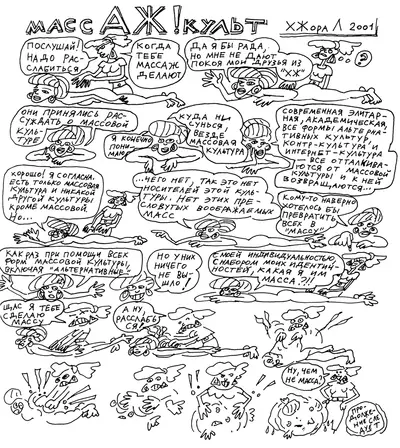 МАССАЖ!КУЛЬТ
ХЖОРАЛ 2001
ПОСЛУШАЙ!
НАДО РАС-
СЛАБИТЬСЯ
КОГДА
ТЕБЕ
МАССАЖ
ДЕЛАЮТ
ДА Я БЫ РАДА,
НО МНЕ НЕ ДАЮТ
ПОКОЯ МОИ ДРУЗЬЯ ИЗ
"ХЖ"
?
ОНИ ПРИНЯЛИСЬ РАС-
СУЖДАТЬ О МАССОВОЙ
КУЛЬ-
ТУРЕ
Я КОНЕЧНО
ПОНИ-
МАЮ
КУДА НИ
СУНЬСЯ
ВЕЗДЕ
МАССОВАЯ
КУЛЬТУРА
СОВРЕМЕННАЯ ЭЛИТАР-
НАЯ, АКАДЕМИЧЕСКАЯ,
ВСЕ ФОРМЫ АЛЬТЕРНА-
ТИВНЫХ КУЛЬТУР
КОНТР-КУЛЬТУРА И
ИНТЕРНЕТ-КУЛЬТУРА
ВСЕ ОТТАЛКИВА-
ЮТСЯ ОТ МАССОВОЙ
КУЛЬТУРЫ И К НЕЙ
ВОЗВРАЩАЮТСЯ...
ХОРОШО! Я СОГЛАСНА.
ЕСТЬ ТОЛЬКО МАССОВАЯ
КУЛЬТУРА И НИКАКОЙ
ДРУГОЙ КУЛЬТУРЫ
КРОМЕ МАССОВОЙ
НО...
...ЧЕГО НЕТ, ТАК ЭТО НЕТ
НОСИТЕЛЕЙ ЭТОЙ КУЛЬ-
ТУРЫ. НЕТ ЭТИХ ПРЕ-
СЛОВУТЫХ ВООБРАЖАЕМЫХ
МАСС
КОМУ-ТО НАВЕРНО
ХОТЕЛОСЬ БЫ
ПРЕВРАТИТЬ
ВСЕХ В
"МАССУ"
КАК РАЗ ПРИ ПОМОЩИ ВСЕХ
ФОРМ МАССОВОЙ КУЛЬТУРЫ,
ВКЛЮЧАЯ "АЛЬТЕРНАТИВНЫЕ"
НО У НИХ
НИЧЕГО
НЕ ВЫ-
ШЛО!
С МОЕЙ ИНДИВИДУАЛЬНОСТЬЮ,
С НАБОРОМ МОИХ ИДЕНТИЧ-
НОСТЕЙ, КАКАЯ Я ИМ
МАССА?!!
ЩАС Я ТЕБЕ
СДЕЛАЮ
МАССУ
А НУ,
РАССЛАБЬ-
СЯ!
НУ, ЧЕМ
НЕ МАССА!
ПРО-
ДОЛЖЕ-
НИЕ СЛЕ-
ДУЕТ